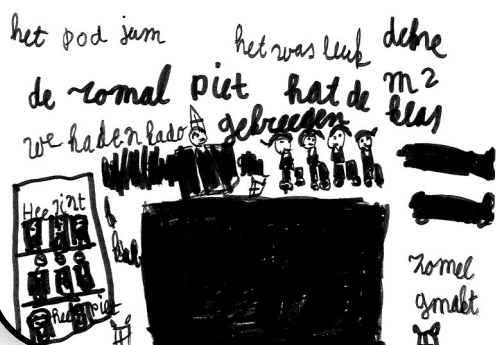 het pod jum
het was leuk
debre
de romal piet hat de m2
we haden kado gekreegen klas
Hee zint
hee piet
romel
gmakt